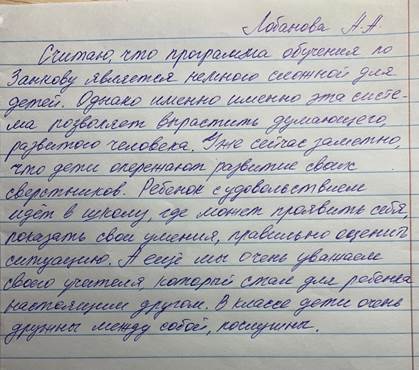 Лобанова А.А.
Считаю, что программа обучения по
Занкову является немного сложной для
детей. Однако именно именно эта систе-
ма позволяет вырастить думающего,
развитого человека. Уже сейчас заметно,
что дети опережают развитие своих
сверстников. Ребенок с удовольствием
идёт в школу, где может проявить себя,
показать свои умения, правильно оценить
ситуацию. А ещё мы очень уважаем
своего учителя, который стал для ребенка
настоящим другом. В классе дети очень
дружны между собой, послушны.